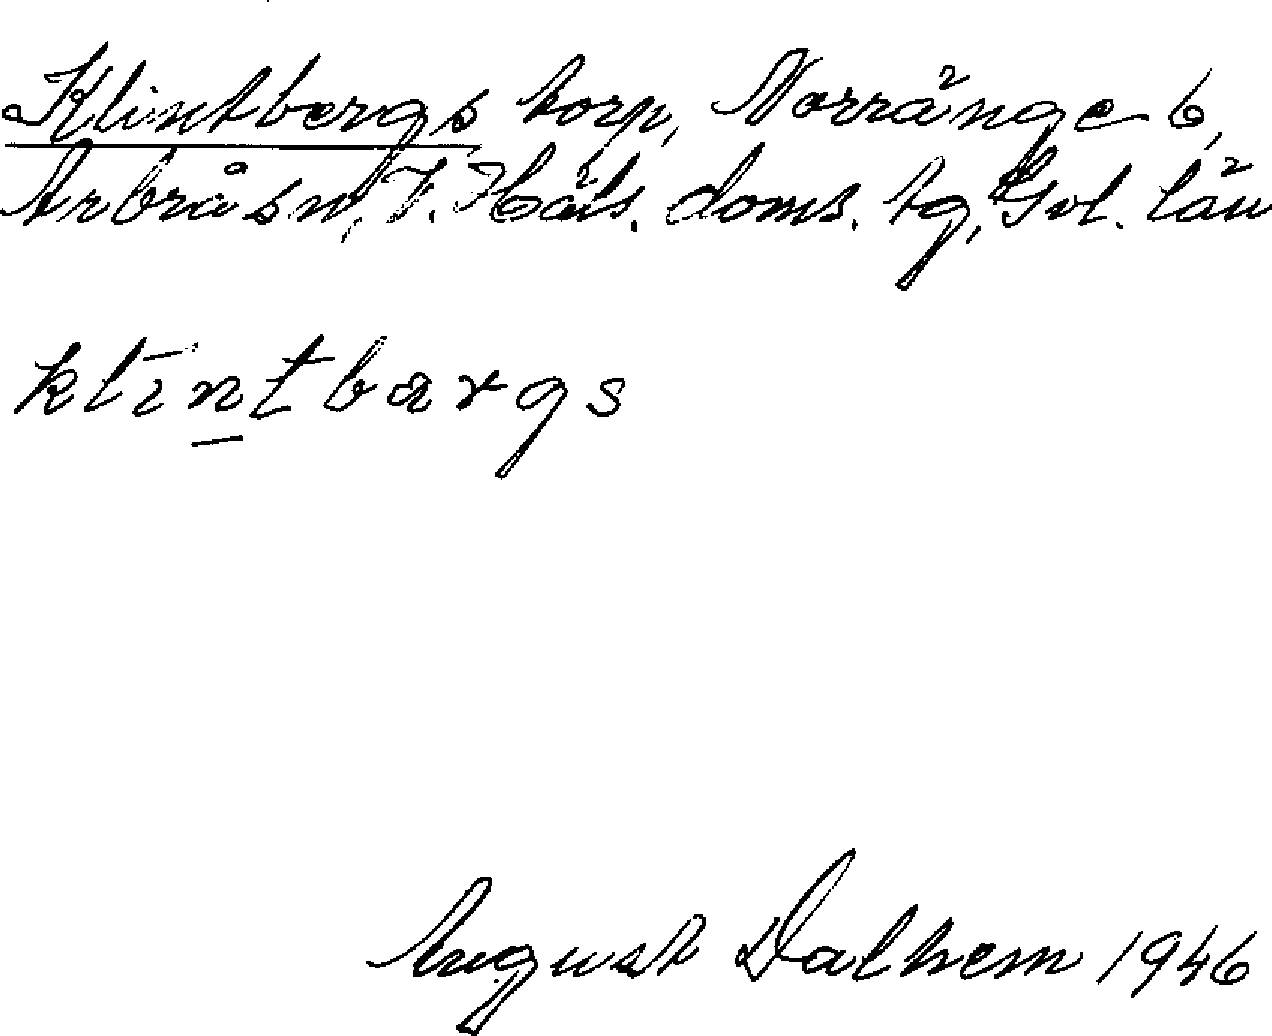 Klintbergs torp, Norränge 6,
Arbrå sn, V. Häls. doms. tg, Gvl. län
klīn̲tbärgs
August Dalhem 1946